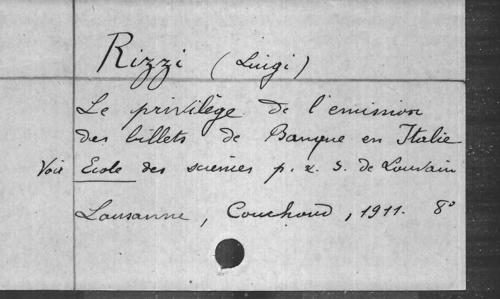 Rizzi (Luigi)
Le privilège de l'emission
des billets de Banque en Italie
Voir Ecole des sciences p. & s. de Louvain
Lausanne, Couchoud, 1911. 8°